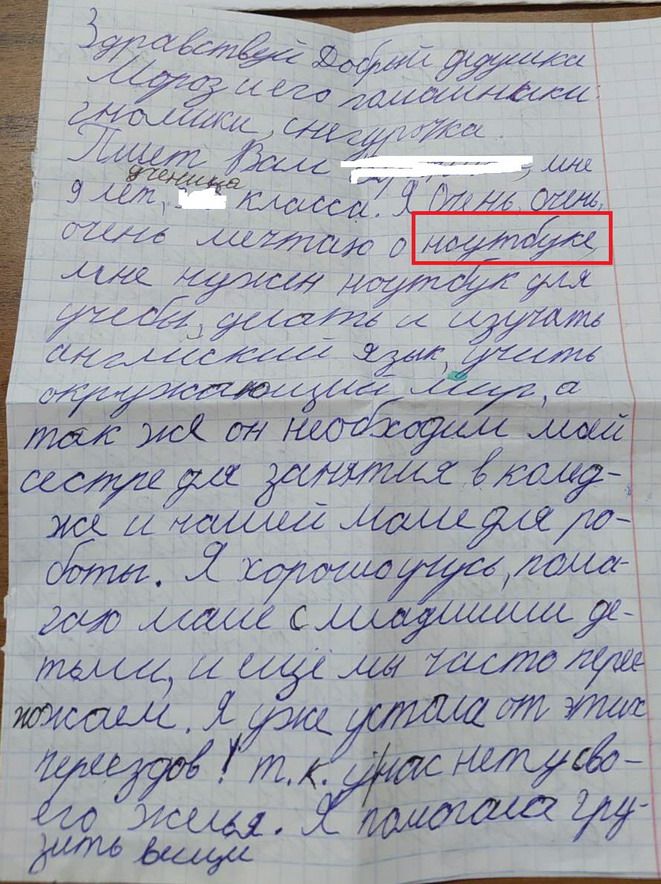 Здравствуй Добрый дедушка
Мороз и его помошники:
гномики, снегурочка.
Пишет Вам , мне
ученица
9 лет, класса. Я очень, очень,
очень мечтаю о ноутбуке,
мне нужен ноутбук для
учебы, делать и изучать
английский язык, учить
окружающий мир, а
так же он необходим моей
сестре для занятия в колед-
же и нашей маме для ро-
боты. Я хорошо учусь, пома-
гаю маме с младшими де-
тьми, и ещё мы часто перее
жаем. Я уже устала от этих
переездов! т.к. у нас нету сво-
его желья. Я помогала гру-
зить вещи